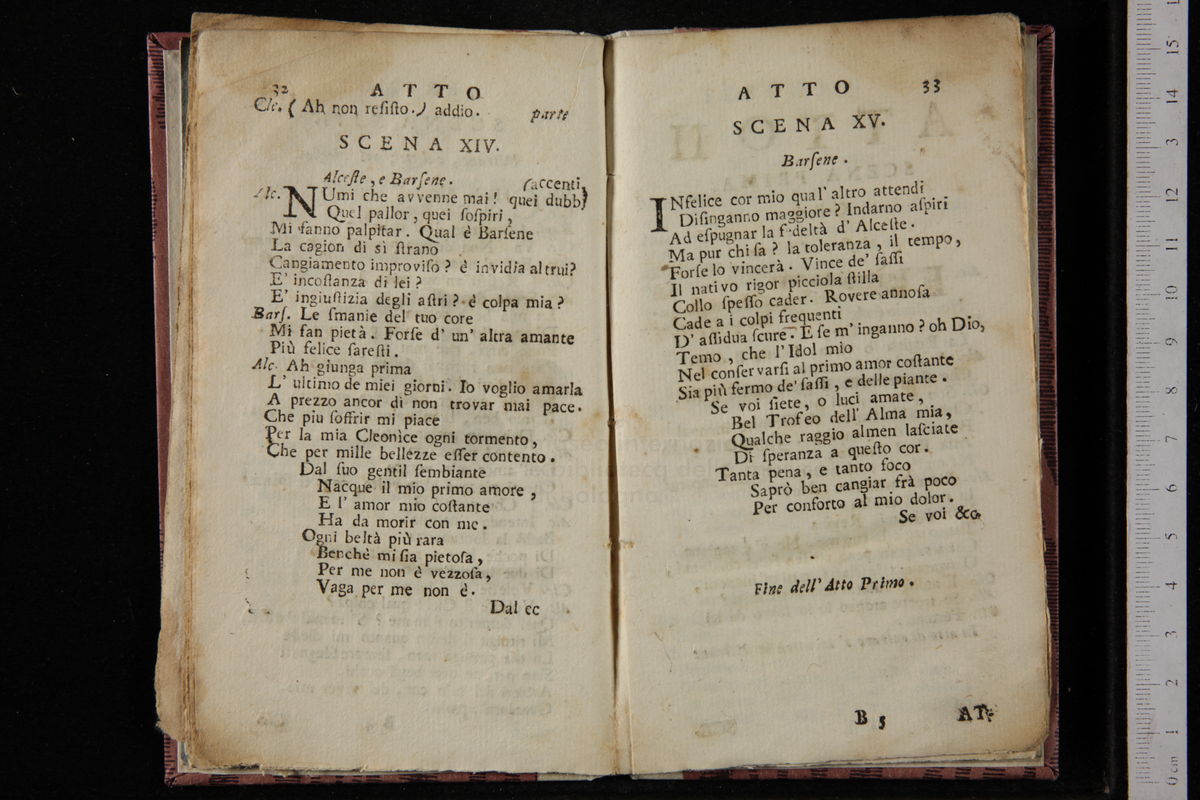 32 ATTO
Cle. ( Ah non reſiſto.) addio. parte
SCENA XIV.
Alceſte, e Barſene. (accenti,
Alc. NUmi che avvenne mai! quei dubbj
Quel pallor, quei ſoſpiri,
Mi fanno palpitar. Qual è Barſene
La cagion di sì ſtrano
Cangiamento improviſo? è invidia altrui?
E' incoſtanza di lei?
E' ingiuſtizia degli aſtri? è colpa mia?
Barſ. Le ſmanie del tuo core
Mi fan pietà. Forſe d' un' altra amante
Più felice ſareſti.
Alc. Ah giunga prima
L' ultimo de miei giorni. Io voglio amarla
A prezzo ancor di non trovar mai pace.
Che piu ſoffrir mi piace
Per la mia Cleonìce ogni tormento,
Che per mille bellezze eſſer contento.
Dal ſuo gentil ſembiante
Nacque il mio primo amore,
E l' amor mio coſtante
Ha da morir con me.
Ogni beltà più rara
Benchè mi ſia pietoſa,
Per me non è vezzoſa,
Vaga per me non è.
Dal ec
ATTO 33
SCENA XV.
Barſene.
INfelice cor mio qual' altro attendi
Diſinganno maggiore? Indarno aſpiri
Ad eſpugnar la fedeltà d' Alceſte.
Ma pur chi ſa? la toleranza, il tempo,
Forſe lo vincerà. Vince de' ſaſſi
Il nativo rigor picciola ſtilla
Collo ſpeſſo cader. Rovere annoſa
Cade a i colpi frequenti
D' aſſidua ſcure. E ſe m' inganno? oh Dio,
Temo, che l' Idol mio
Nel conſervarſi al primo amor coſtante
Sia più fermo de' ſaſſi, e delle piante.
Se voi ſiete, o luci amate,
Bel Trofeo dell' Alma mia,
Qualche raggio almen laſciate
Di ſperanza a queſto cor.
Tanta pena, e tanto foco
Saprò ben cangiar frà poco
Per conforto al mio dolor.
Se voi &c.
Fine dell' Atto Primo.
B 5 AT-